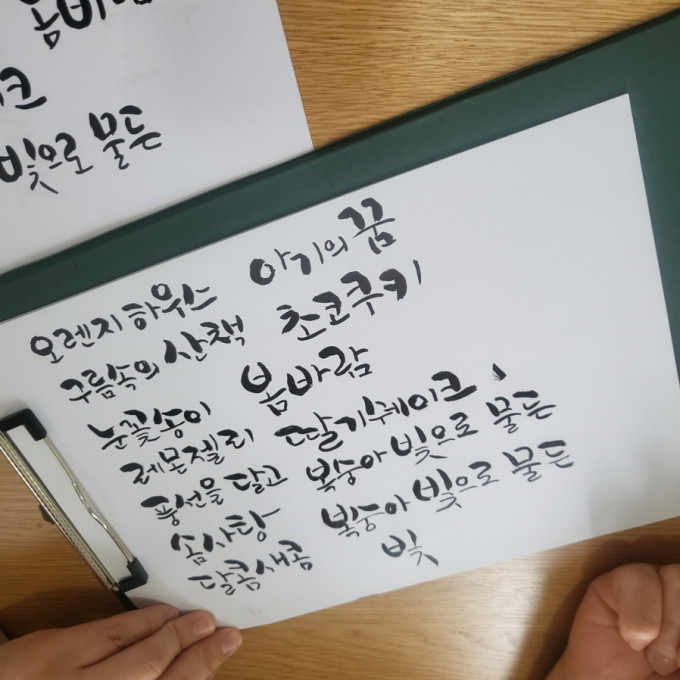 봄바람
크
빛으로 물든
오렌지 하우스 아기의 꿈
구름속의 산책 초코쿠키
눈꽃송이 봄바람
레몬젤리 딸기쉐이크
풍선을 달고 복숭아 빛으로 물든
솜사탕 복숭아 빛으로 물든
달콤새콤 빛